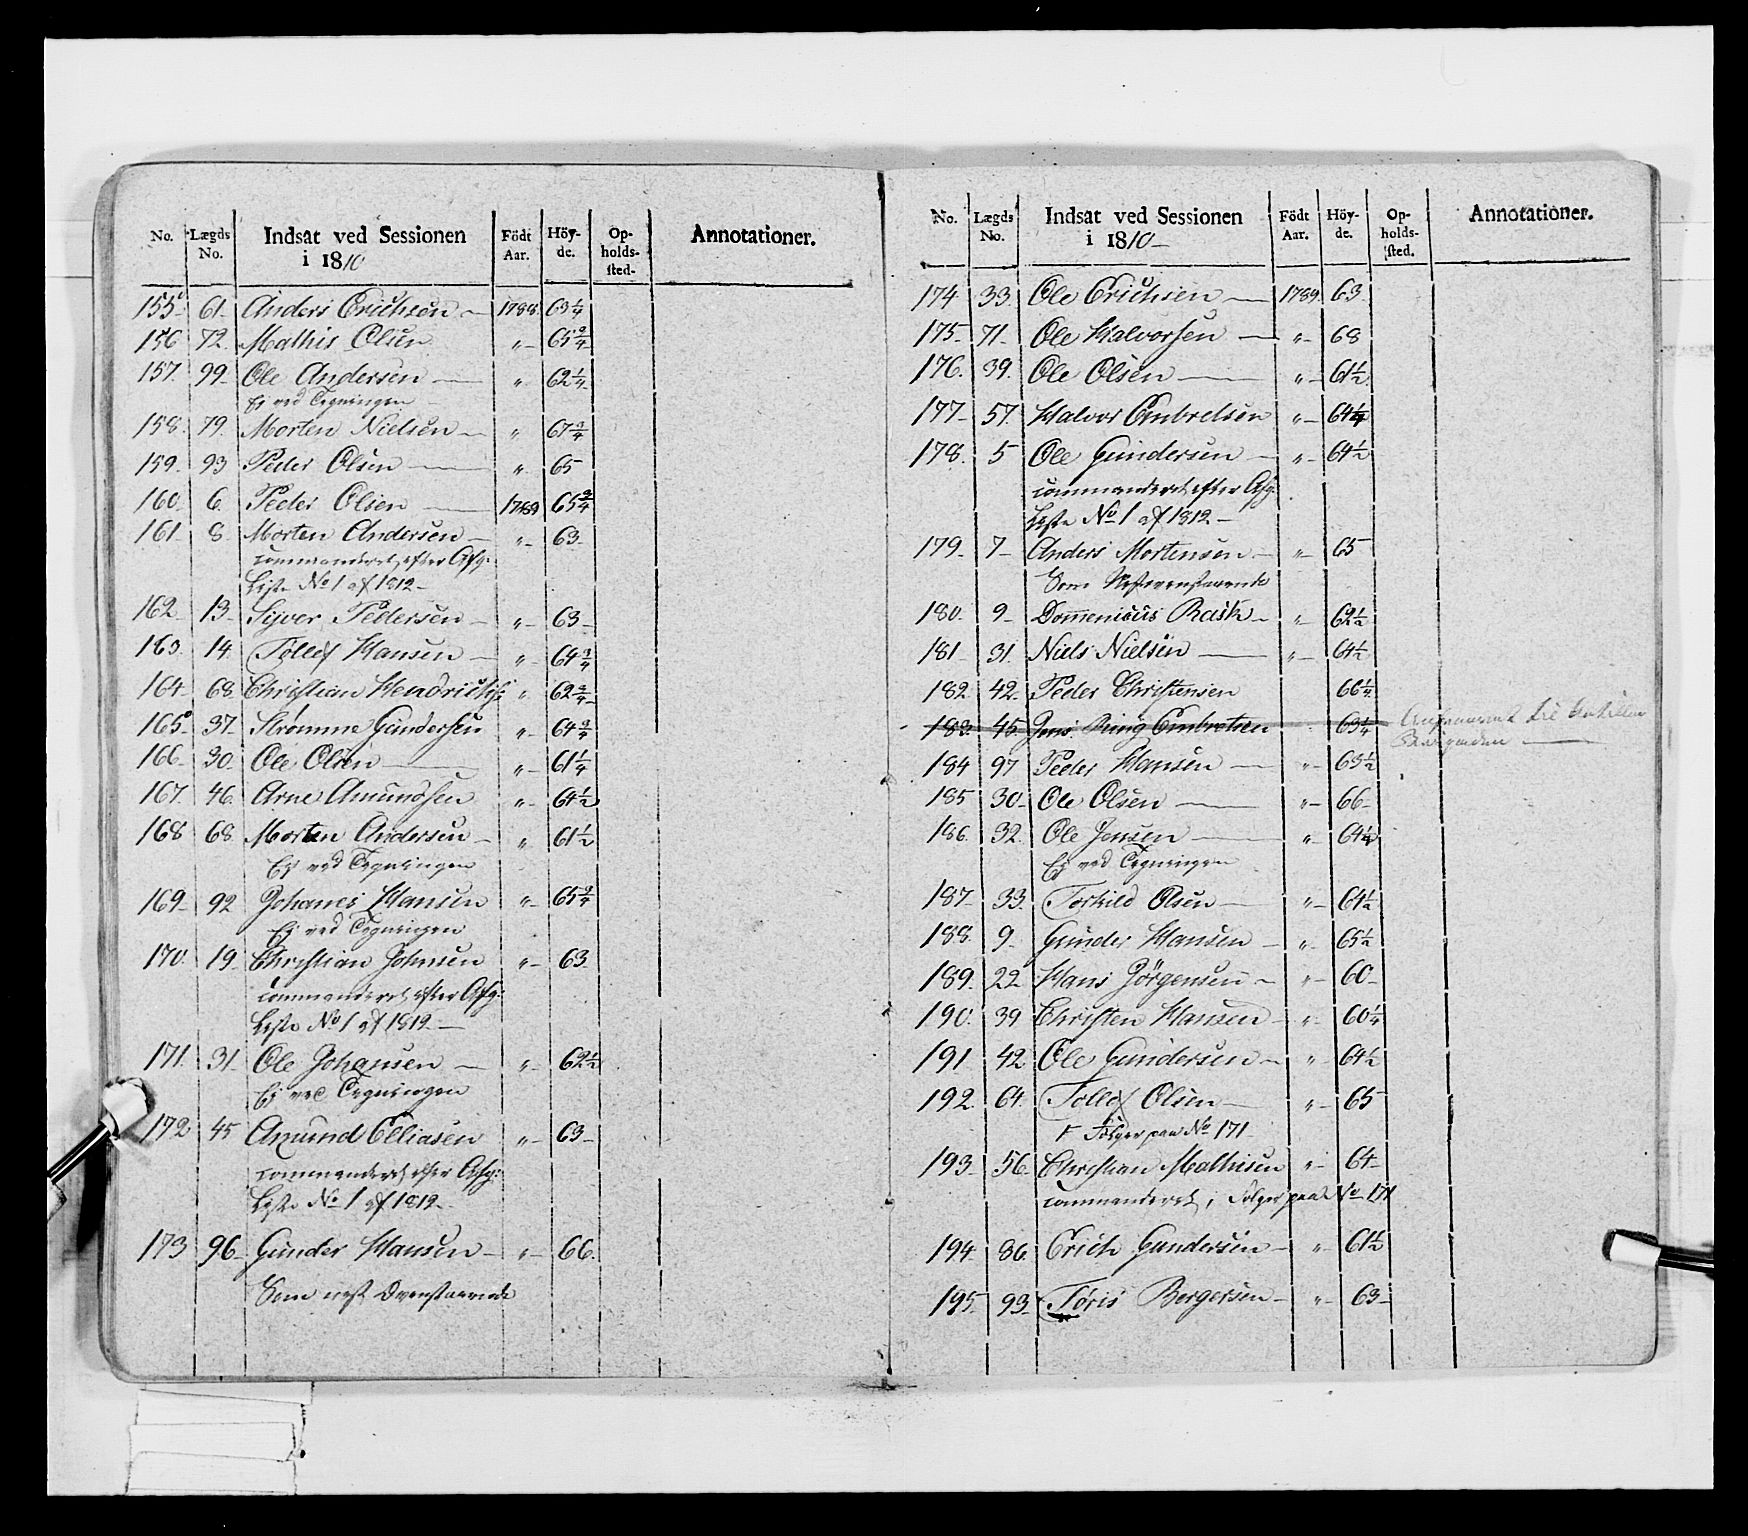 No. Lægds No. Indsat ved Sessionen i 1810 Födt Aar. Höyde. Opholdssted. Annotationer.
155. 61. Anders Erichsen 1788. 63 1/4
156 72. Mathis Olsen " 65 3/4
157. 99. Ole Andersen " 62 1/4
Ej ved Tegningen
158. 79. Morten Nielsen " 67 3/4
159. 93 Peder Olsen " 65
160. 6. Peder Olsen 1789 65 3/4
161 8. Morten Andersen " 63
commanderet efter Afg:
Liste No 1 af 1812
162 13 Syver Pedersen " 63
163. 14. Tollef Hansen " 64 3/4
164 68. Christian Hendrichs: " 62 3/4
165 37. Strømme Gundersen " 64 3/4
166 30. Ole Olsen " 61 1/4
167. 46. Arne Amundsen " 64 1/2
168 68. Morten Andersen " 61 1/2
Ej ved Tegningen
169 92 Johanes Hansen " 65 3/4
Ej ved Tegningen
170. 19. Christian Johnsen " 63
commanderet efter Afg:
Liste No 1 af 1812
171. 31. Ole Johansen " 62 1/2
Ej ved Tegningen
172 45 Amund Elliasen " 63
commanderet efter Afg:
Liste No 1 af 1812
173 96. Gunder Hansen " 66.
Som nest Ovenstaaende
No. Lægds No. Indsat ved Sessionen i 1810 Födt Aar. Höyde. Opholdssted. Annotationer.
174 33. Ole Erichsen 1789. 63
175. 71. Ole Halvorsen " 68
176. 39. Ole Olsen " 61 1/2
177 57. Halvor Embretsen " 64 1/4
178. 5 Ole Gundersen " 64 1/2
commanderet efter Afg:
Liste No 1 af 1812
179. 7 Anders Mortensen " 65
Som
180. 9 Domenicus Rask " 62 1/2
181 31. Niels Nielsen " 64 1/2
182. 42. Peder Christensen 66 1/4
183. 45 Jens Ring Embretsen 63 1/4 til
184 97 Peder Hansen " 63 1/2
185 30 Ole Olsen " 66
186. 32. Ole Jensen " 64 1/4
Ej ved Tegningen
187. 33. Torkild Olsen " 64 1/2
188. 9. Gunder Hansen " 65 1/2
189. 22 Hans Jörgensen " 60
190. 39 Christen Hansen " 60 1/4
191 42 Ole Gundersen " 64 1/2
192. 64. Tollef Olsen " 65
Følger paa No 171
193 56. Christian Mathisen " 64
commanderet, Følger paa No 171
194 86. Erich Gundersen " 61 1/2
195. 93. Töris Bergersen " 63